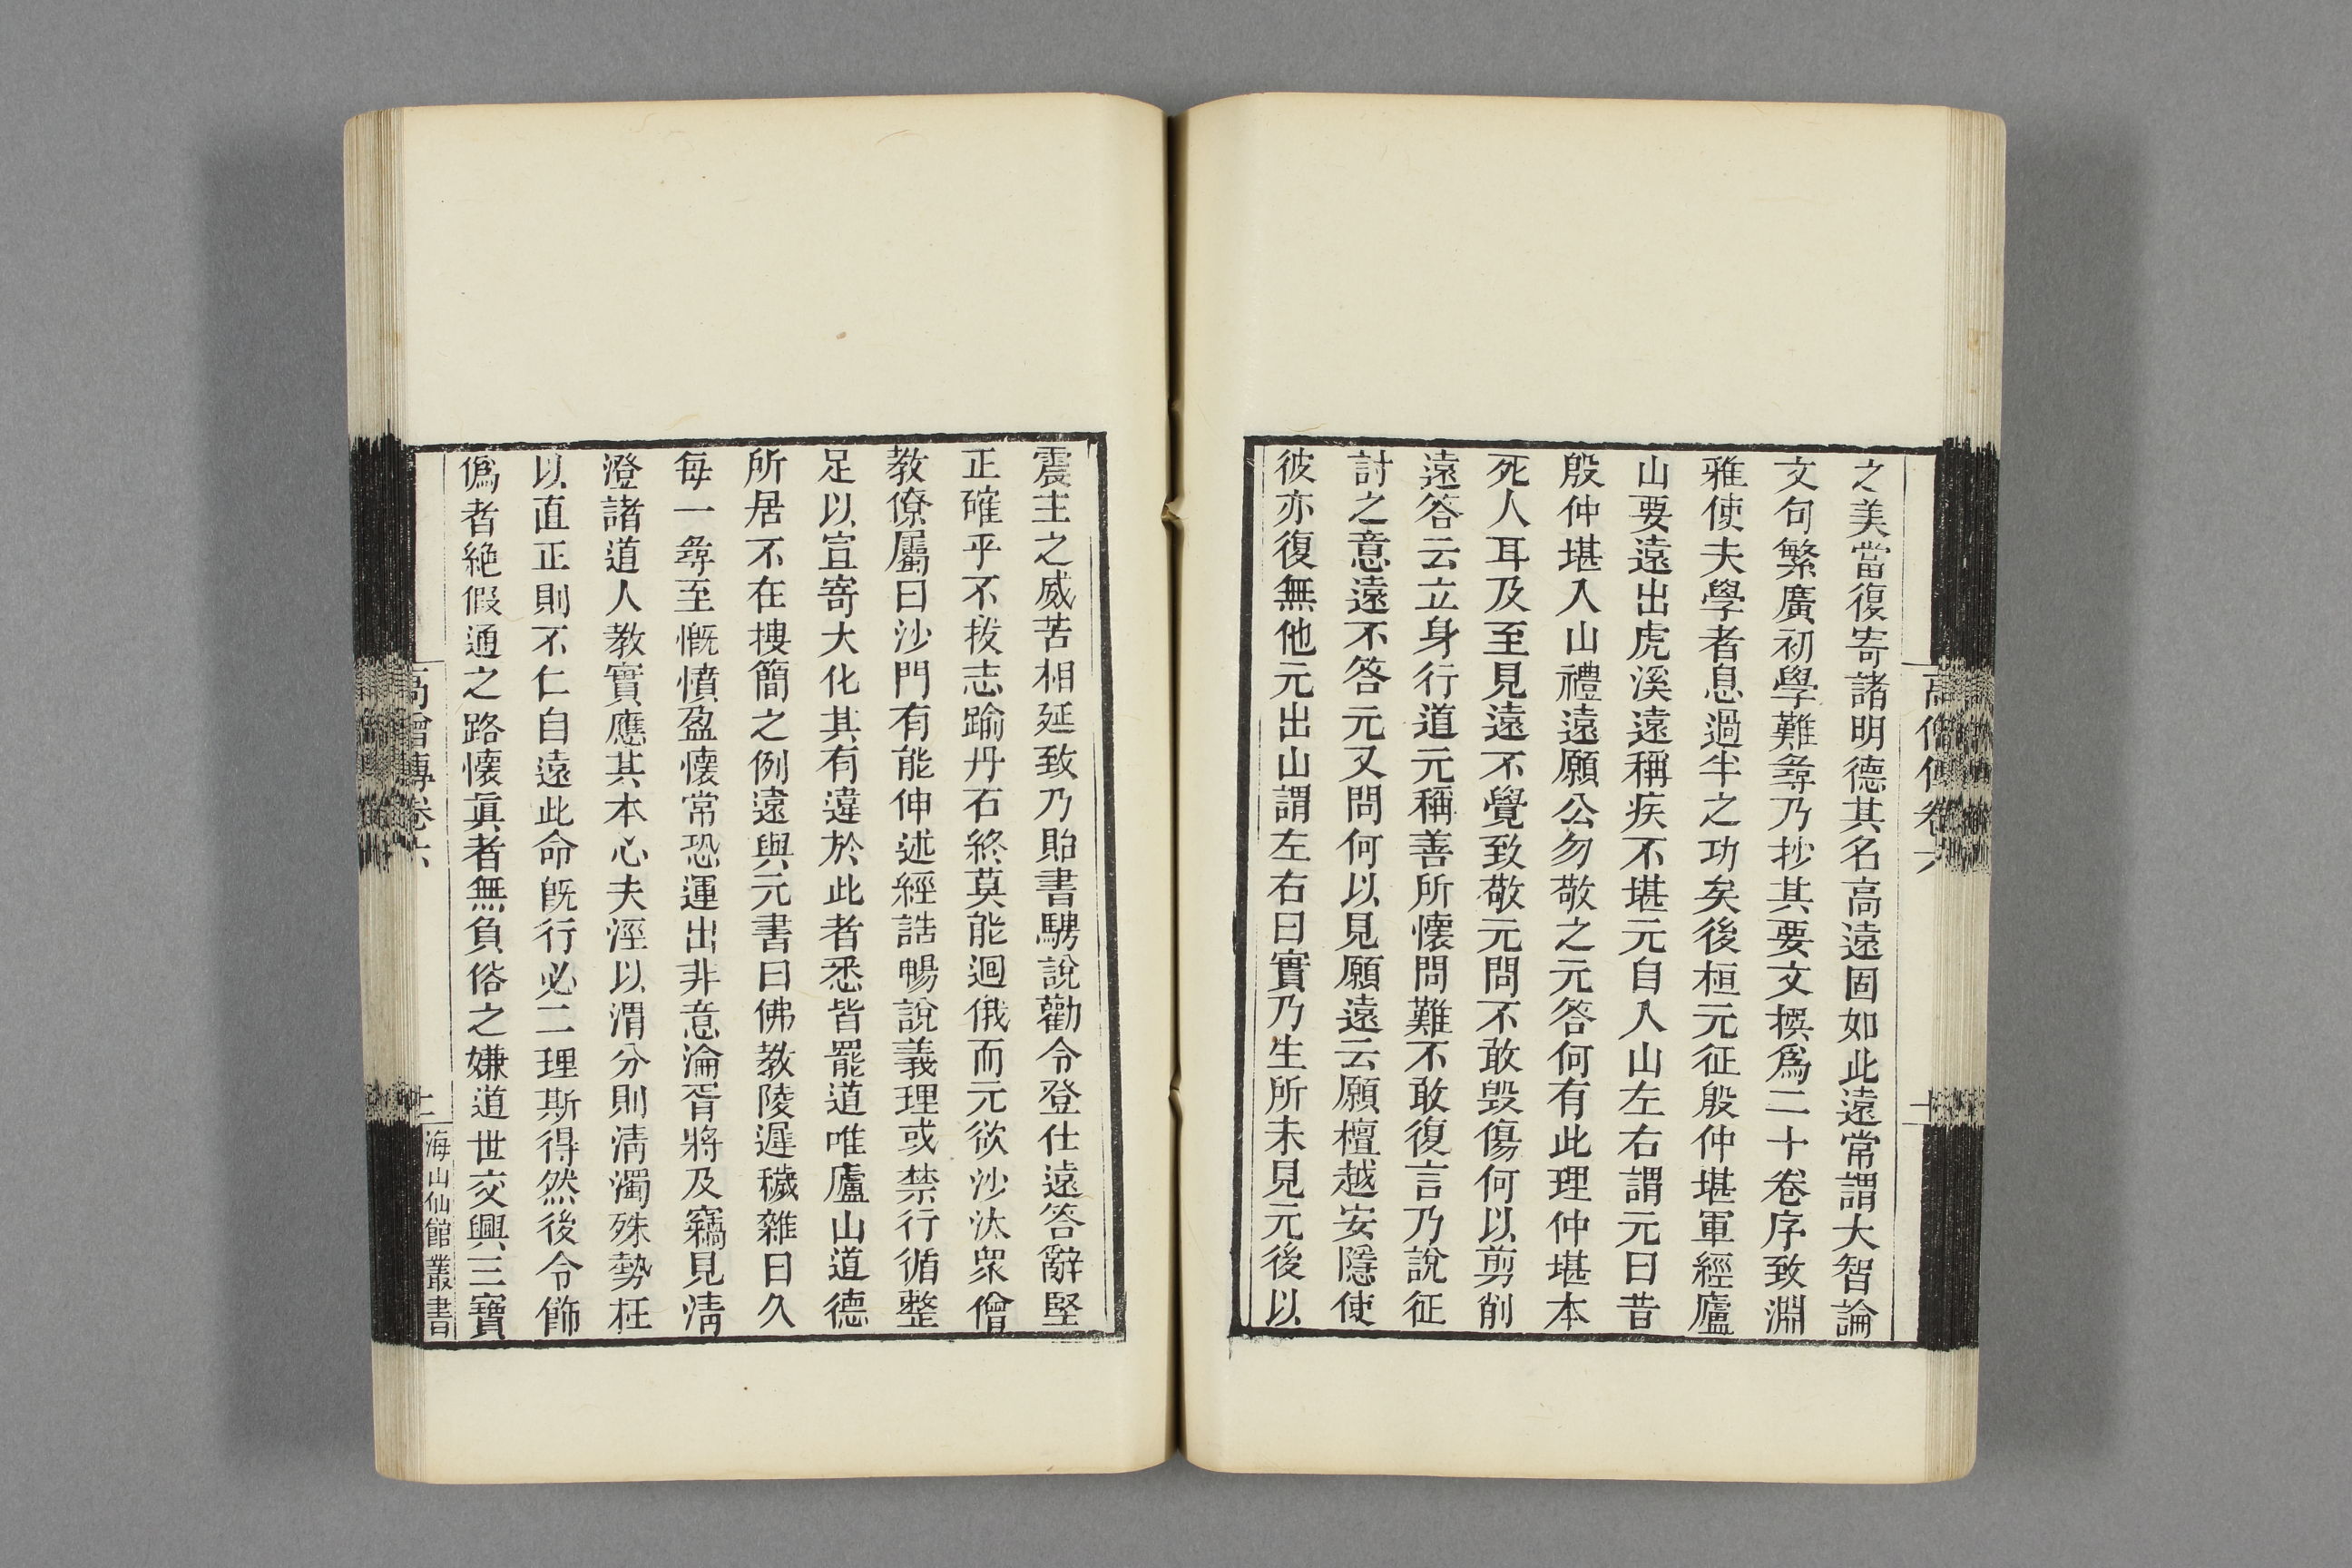 高僧傳卷六
之美當復寄諸明德其名高遠固如此遠常謂大智論
文句繁廣初學難尋乃抄其要文撰爲二十卷序致淵
雅使夫學者息過半之功矣後桓元征殷仲堪軍經廬
山要遠出虎溪遠稱疾不堪元自入山左右謂元曰昔
殷仲堪入山禮遠願公勿敬之元答何有此理仲堪本
死人耳及至見遠不覺致敬元問不敢毀傷何以剪削
遠答云立身行道元稱善所懷問難不敢復言乃說征
討之意遠不答元又問何以見願遠云願檀越安隱使
彼亦復無他元出山謂左右曰實乃生所未見元後以
震主之威苦相延致乃貽書騁說勸令登仕遠答辭堅
正確乎不拔志踰丹石終莫能迴俄而元欲沙汰衆僧
教僚屬曰沙門有能伸述經誥暢說義理或禁行循整
足以宣寄大化其有違於此者悉皆罷道唯廬山道德
所居不在搜簡之例遠與元書曰佛教陵遲穢雜日久
每一尋至慨憤盈懷常恐運出非意淪胥將及竊見淸
澄諸道人教實應其本心夫涇以渭分則淸濁殊勢枉
以直正則不仁自遠此命旣行必二理斯得然後令飾
僞者絶假通之路懷眞者無負俗之嫌道世交興三寶
高僧傳卷六
十一
海山仙館叢書